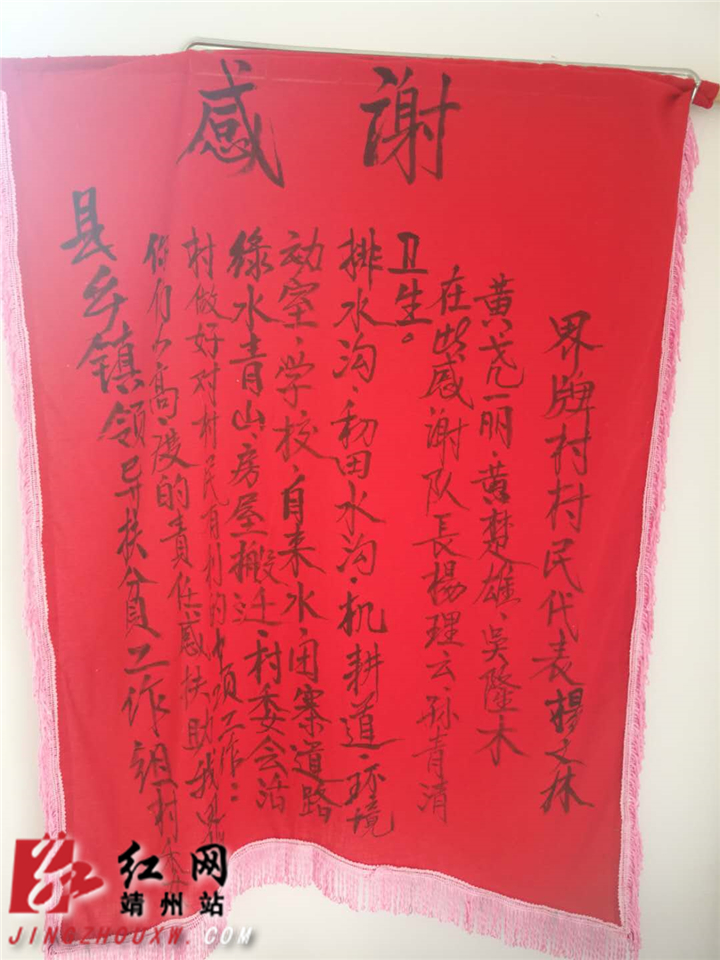 感谢
县乡镇领导扶贫工作组村
你们以高度的責任感扶助我
村做好对村民有利的十项工作：
綠水青山、房屋搬迁、村委会活
动室、学校、自来水、寨道路
排水沟、田水沟、机耕道、环境
卫生。
在此感谢队長楊理云、孙青清
黄丽、黄楚雄、吴隆木
界牌村村民代表楊文林
红网
靖州站
JINGZHOUXW.COM